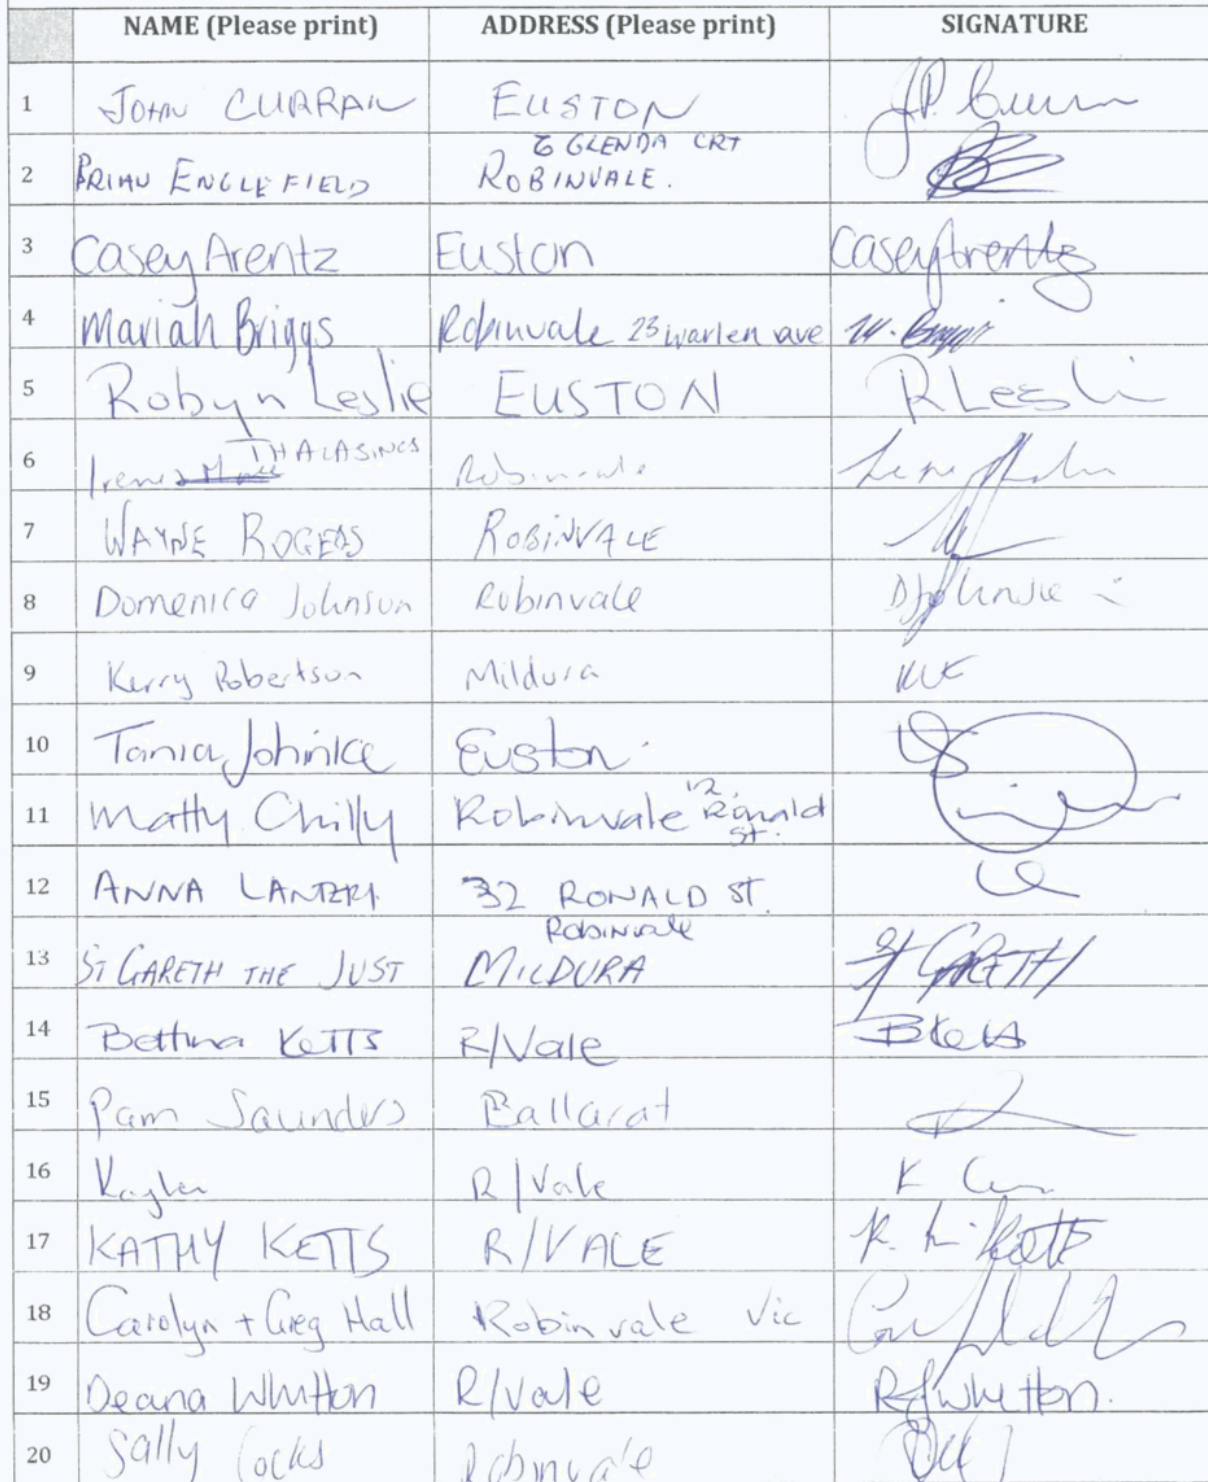 NAME (Please print) ADDRESS (Please print) SIGNATURE
1 JOHN CURRAN EUSTON J.P. Curran
2 BRIAN ENGLEFIELD 6 GLENDA CRT
ROBINVALE.
3 Casey Arentz Euston Casey Arentz
4 Mariah Briggs Robinvale 23 warlen ave M. Briggs
5 Robyn Leslie EUSTON R Lesli
6 Irene THALASINOS Robinvale
7 WAYNE ROGERS ROBINVALE
8 Domenica Johnson Robinvale
9 Kerry Robertson Mildura
10 Tania Johinke Euston
11 Matty Chilly Robinvale 12 Ronald
St.
12 ANNA LANTZRI 32 RONALD ST.
Robinvale
13 ST GARETH THE JUST MILDURA ST GARETH
14 Bettina KETTS R/Vale B Ketts
15 Pam Saunders Ballarat
16 Kaylen R/Vale
17 KATHY KETTS R/VALE K. M. Ketts
18 Carolyn + Greg Hall Robinvale Vic
19 Deana Whitton R/vale Whitton.
20 Sally Cocks Robinvale